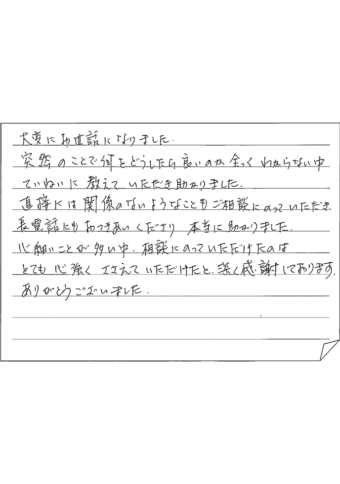 大変にお世話になりました.
突然のことで何をどうしたら良いのか全っくわからない中
ていねいに教えていただき助かりました.
直接には関係のないようなこともご相談にのっていただき.
長電話にもおつきあいくださり本当に助かりました.
心細いことが多い中.相談にのっていただけたのは
とても心強くささえていただけたと.深く感謝しております.
ありがとうございました.